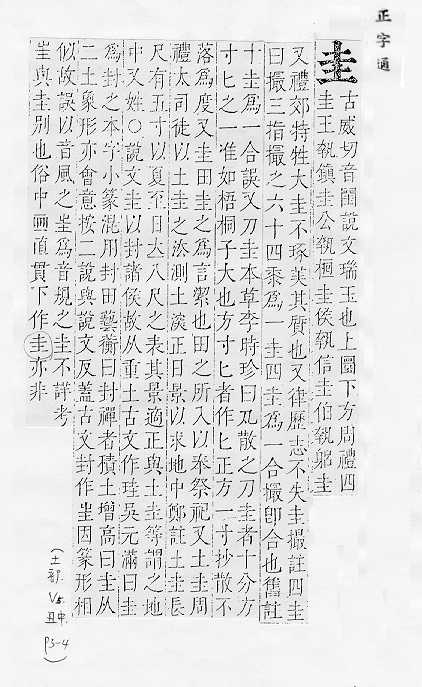 正字通
圭
古威切音閨說文瑞玉也上圜下方周禮四
圭王執鎮圭公執桓圭侯執信圭伯執躬圭
又禮郊特牲大圭不琢美其質也又律歷志不失圭撮註四圭
曰撮三指撮之六十四黍爲一圭四圭爲一合撮卽合也舊註
十圭爲一合誤又刀圭本草李時珍曰凡散之刀圭者十分方
寸匕之一准如梧桐子大也方寸匕者作匕正方一寸抄散不
落爲度又圭田圭之爲言潔也田之所入以奉祭祀又土圭周
禮大司徒以土圭之法測土深正日景以求地中鄭註土圭長
尺有五寸以夏至日立八尺之表其景適正與土圭等謂之地
中又姓○說文圭以封諸侯故从重土古文作珪吳元滿曰圭
爲封之本字小篆混用封田藝蘅曰封禪者積土增高曰圭从
二土象形亦會意按二說與說文反蓋古文封作𡉚因篆形相
似故誤以音風之𡉚爲音規之圭不詳考
𡉚與圭別也俗中畫直貫下作圭亦非
(土部
丑中
P3-4)